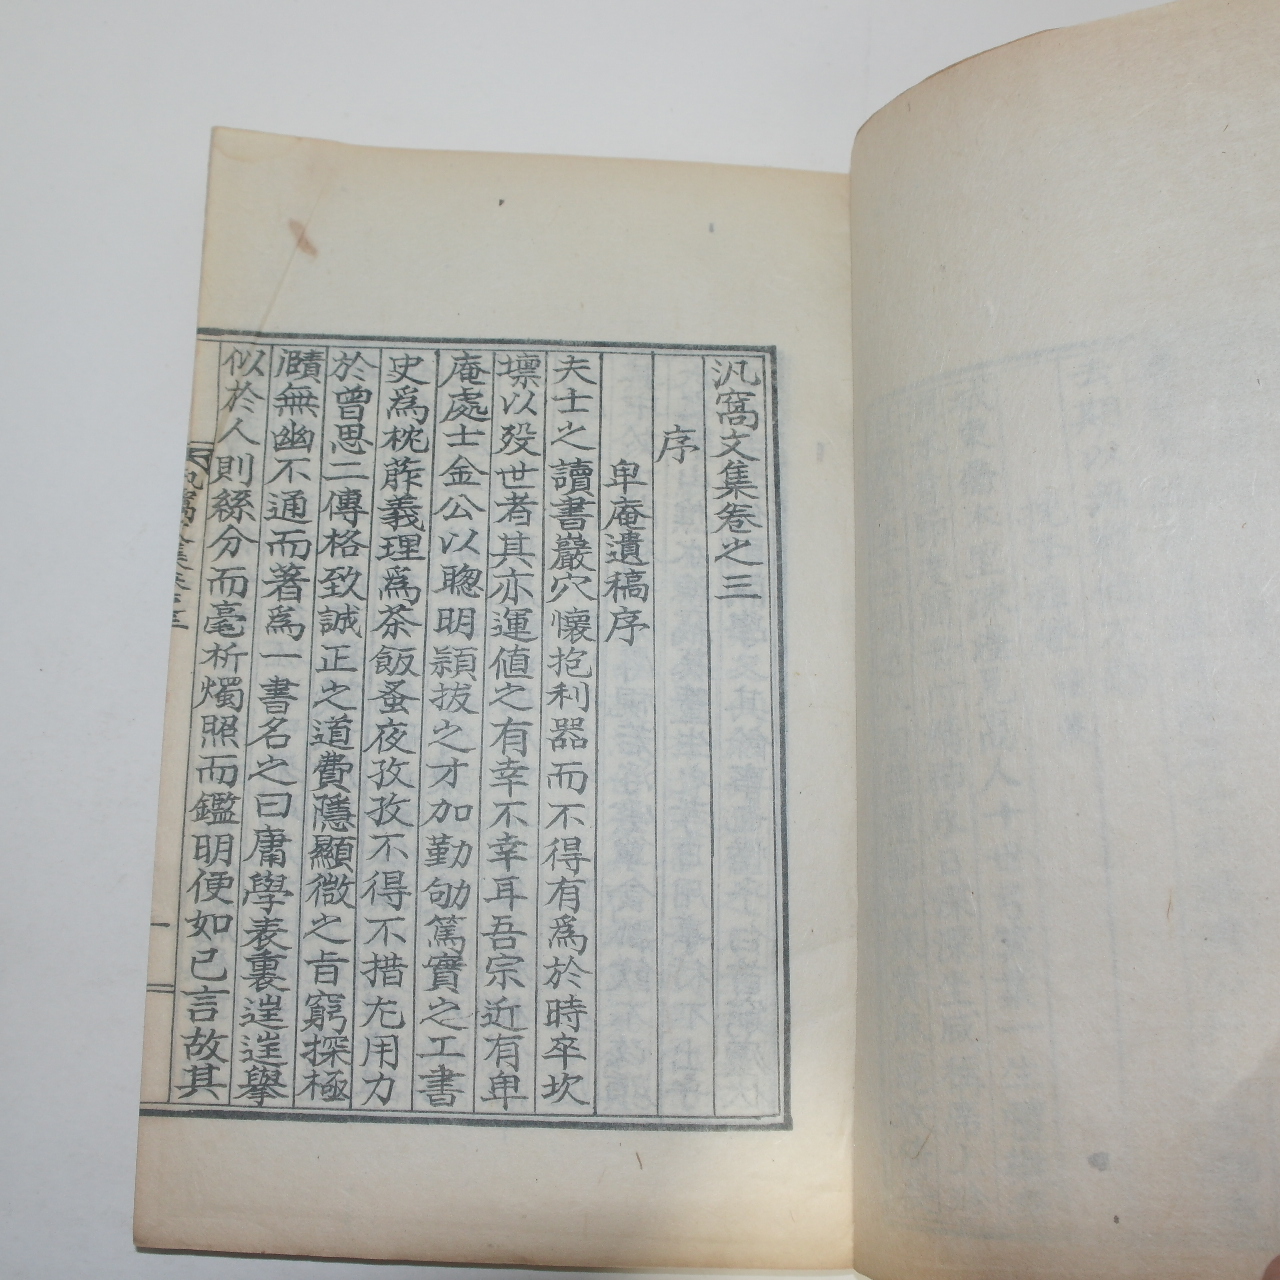 汎窩文集卷之三
序
卑庵遺稿序
夫士之讀書巖穴懷抱利器而不得有爲於時卒坎
壈以歿世者其亦運値之有幸不幸耳吾宗近有卑
庵處士金公以聰明穎拔之才加勤劬篤實之工書
史爲枕葄義理爲茶飯蚤夜孜孜不得不措尤用力
於曾思二傳格致誠正之道費隱顯微之旨窮探極
賾無幽不通而著爲一書名之曰庸學表裏逹逹擧
似於人則絲分而毫析燭照而鑑明便如己言故其
汎窩文集卷之三
一